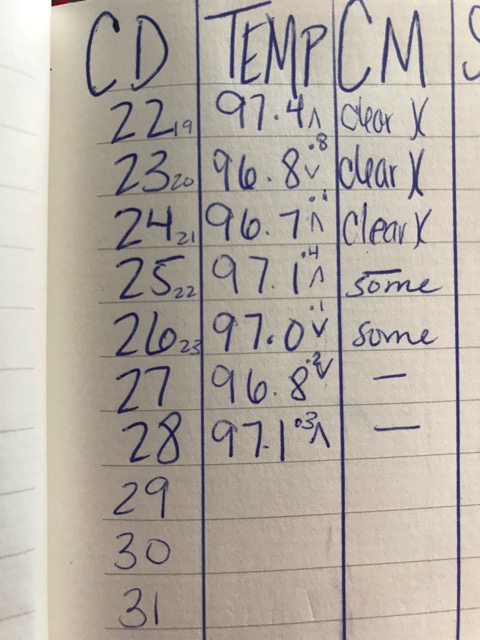 CD TEMP CM S
22 19 97.4 ^ clear X
23 20 96.8 .8 v clear X
24 21 96.7 .1 ^ clear X
25 22 97.1 .4 ^ some
26 23 97.0 .1 v some
27 96.8 .2 v —
28 97.1 .3 ^ —
29
30
31